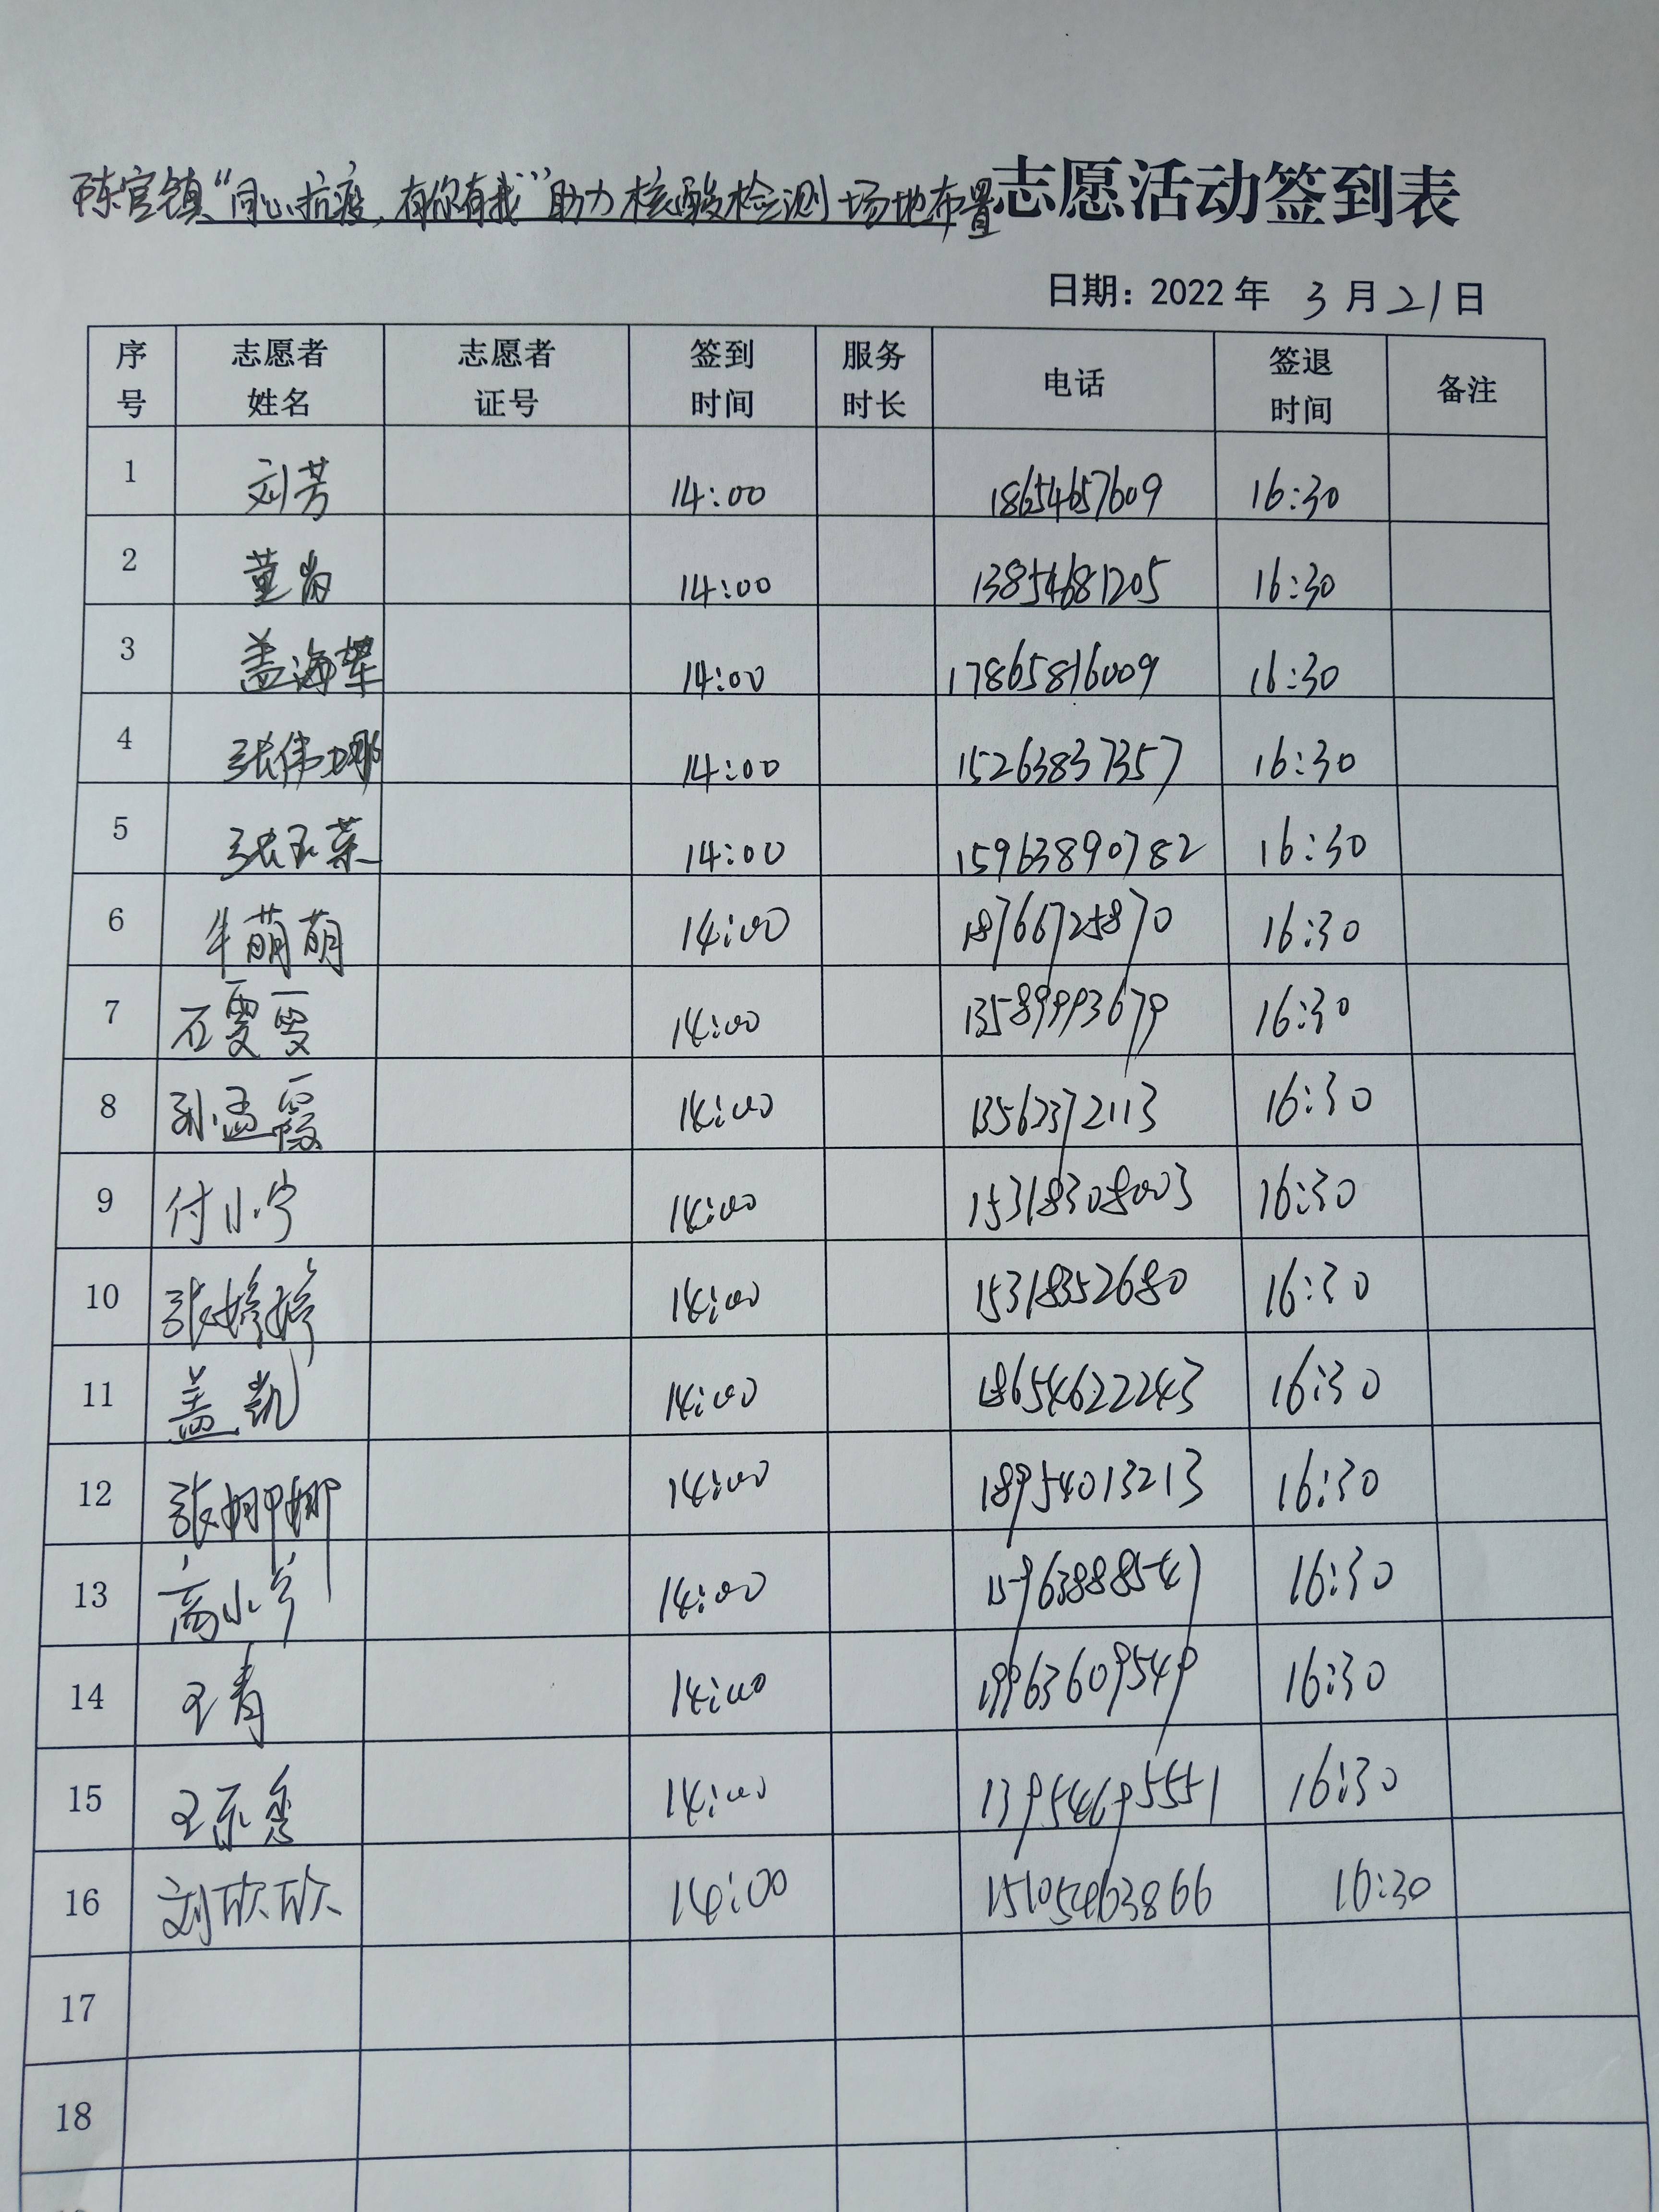 陈官镇“同心抗疫,有你有我”助力核酸检测场地布置志愿活动签到表
日期：2022年 3月21日
序号 志愿者姓名 志愿者证号 签到时间 服务时长 电话 签退时间 备注
1 刘芳 14:00 18654657609 16:30
2 董尚 14:00 13854681205 16:30
3 盖海 14:00 17865816009 16:30
4 张伟娜 14:00 15263837357 16:30
5 张玉荣 14:00 15963890782 16:30
6 牛萌萌 14:00 18766725870 16:30
7 石雯雯 14:00 13589993679 16:30
8 孙孟霞 14:00 13562372113 16:30
9 付小宁 14:00 15318308003 16:30
10 张婷婷 14:00 15318352680 16:30
11 盖凯 14:00 18654622243 16:30
12 张娜娜 14:00 18954013213 16:30
13 高小宁 14:00 15963888547 16:30
14 王青 14:00 19963609549 16:30
15 王东秀 14:00 13954695551 16:30
16 刘欣欣 14:00 15105463866 16:30
17
18